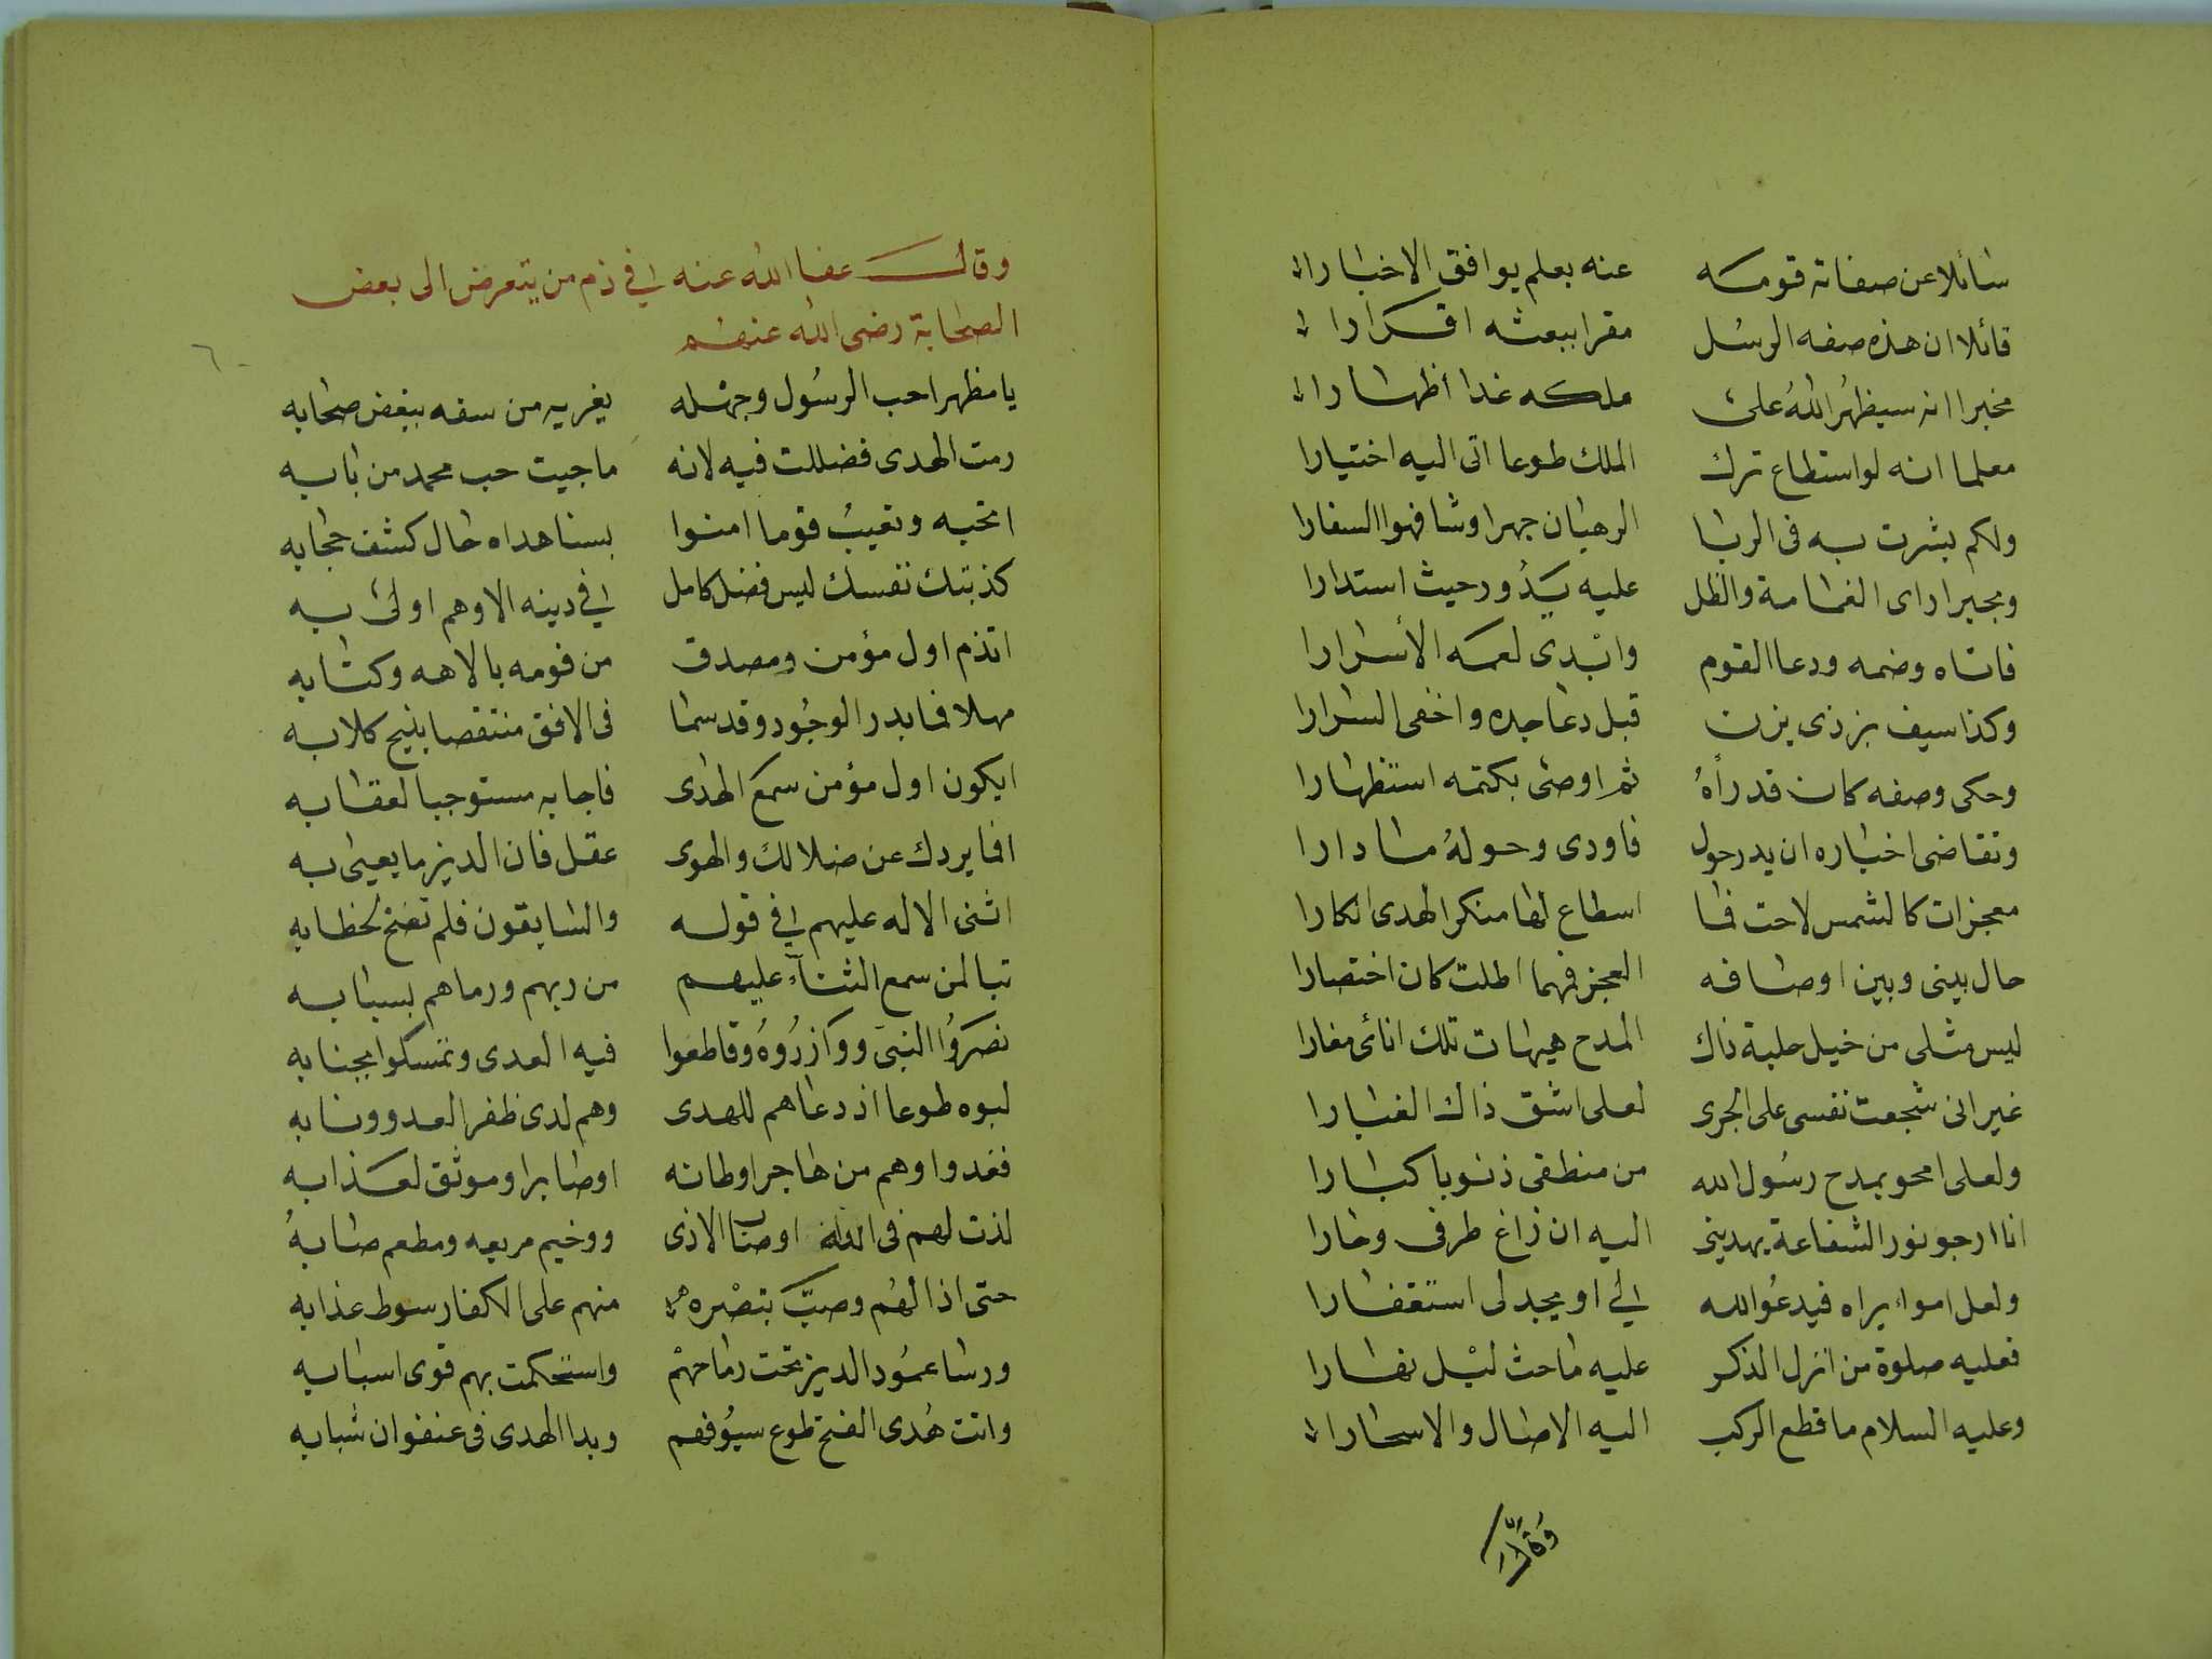 سائلا عن صفاته قومه عنه بعلم يوافق الاخبارا
قائلا ان هذه صفه الرسل مقرا ببعثه اقرارا
مخبرا انه سيظهرُ اللهُ على ملكه غدا أظهارا
معلما انه لو استطاع ترك الملك طوعا اتى اليه اختيارا
ولكم بشرت به فى الربا الرهبان جهرا وشافهوا السفارا
وبحيرا راى الغمامة والظل عليه يَدُور حيث استدارا
فاتاه وضمه ودعا القوم وابْدى لعمه الأسرارا
وكذا سيف بن ذى يزن قبل دعا جده واخفى السرارا
وحكى وصفه كان قد رأهُ ثم اوصى بكتمه استظهارا
وتقاضى اخباره ان يدر حول فاودى وحولهُ ما دارا
معجزات كالشمس لاحت فما اسطاع لها منكر الهدى انكارا
حال بينى وبين اوصافه العجز فمهما اطلت كان اختصارا
ليس مثلى من خيل حلبة ذاك المدح هيهات تلك انائى مغارا
غير انى شجعت نفسى على الجرى لعلى اشق ذاك الغبارا
ولعلى امحو بمدح رسُول الله من منطقى ذنوبا كبارا
انا ارجو نور الشفاعة يهدينى اليه ان زاغ طرفى وحارا
ولعل امراء يراه فيدعُو الله لي او يجد لى استغفارا
فعليه صلوة من انزل الذكر عليه ماحث ليْل نهارا
وعليه السلام ما قطع الركب اليه الاصال والاسحارا
وَقَالَ
وقال عفا الله عنه في ذم من يتعرض الى بعض
الصحابة رضى الله عنهم
٦٠
يا مظهرا حب الرسُول وجهْله يغريه من سفه ببغض صحابه
رمت الهدى فضللت فيه لانه ما جيت حب محمد من بابه
اتحبه وتعيبُ قوما امنوا بسنا هداه حال كشف حجابه
كذبتك نفسك ليس فضل كامل في دينه الا وهم اولى به
اتذم اول مؤمن ومصدق من قومه بالاهه وكتابه
مهلا فما بدر الوجُود وقد سما فى الافق منتقصا بنبح كلابه
ايكون اول مؤمن سمع الهدى فاجابه مستوجبا لعقابه
افما يردك عن ضلالك والهوى عقل فان الدين ما يعيى به
اثنى الاله عليهم في قوله والسابقون فلم تصخ لخطابه
تبا لمن سمع الثنآء عليهم من ربهم ورماهم بسبابه
نصَرَوُا النبىَ ووَازرُوهُ وقاطعوا فيه العدى وتمسكوا بجنابه
لبوه طوعا اذ دعاهم للهدى وهم لدى ظفر العدو ونابه
فغدوا وهم من هاجر اوطانه او صابر او موثق لعذابه
لذت لهم فى الله اوصاب الاذى ووخيم مربعه ومطعم صابهُ
حتى اذا لهُم وصبَّ بنصْره منهم على الكفار سوط عذابه
ورسا عمُود الدين تحت رماحهْم واستحكمت بهم قوى اسبابه
واتت هُدى الفتح طوع سيُوفهم وبدا الهدى فى عنفوان شبابه